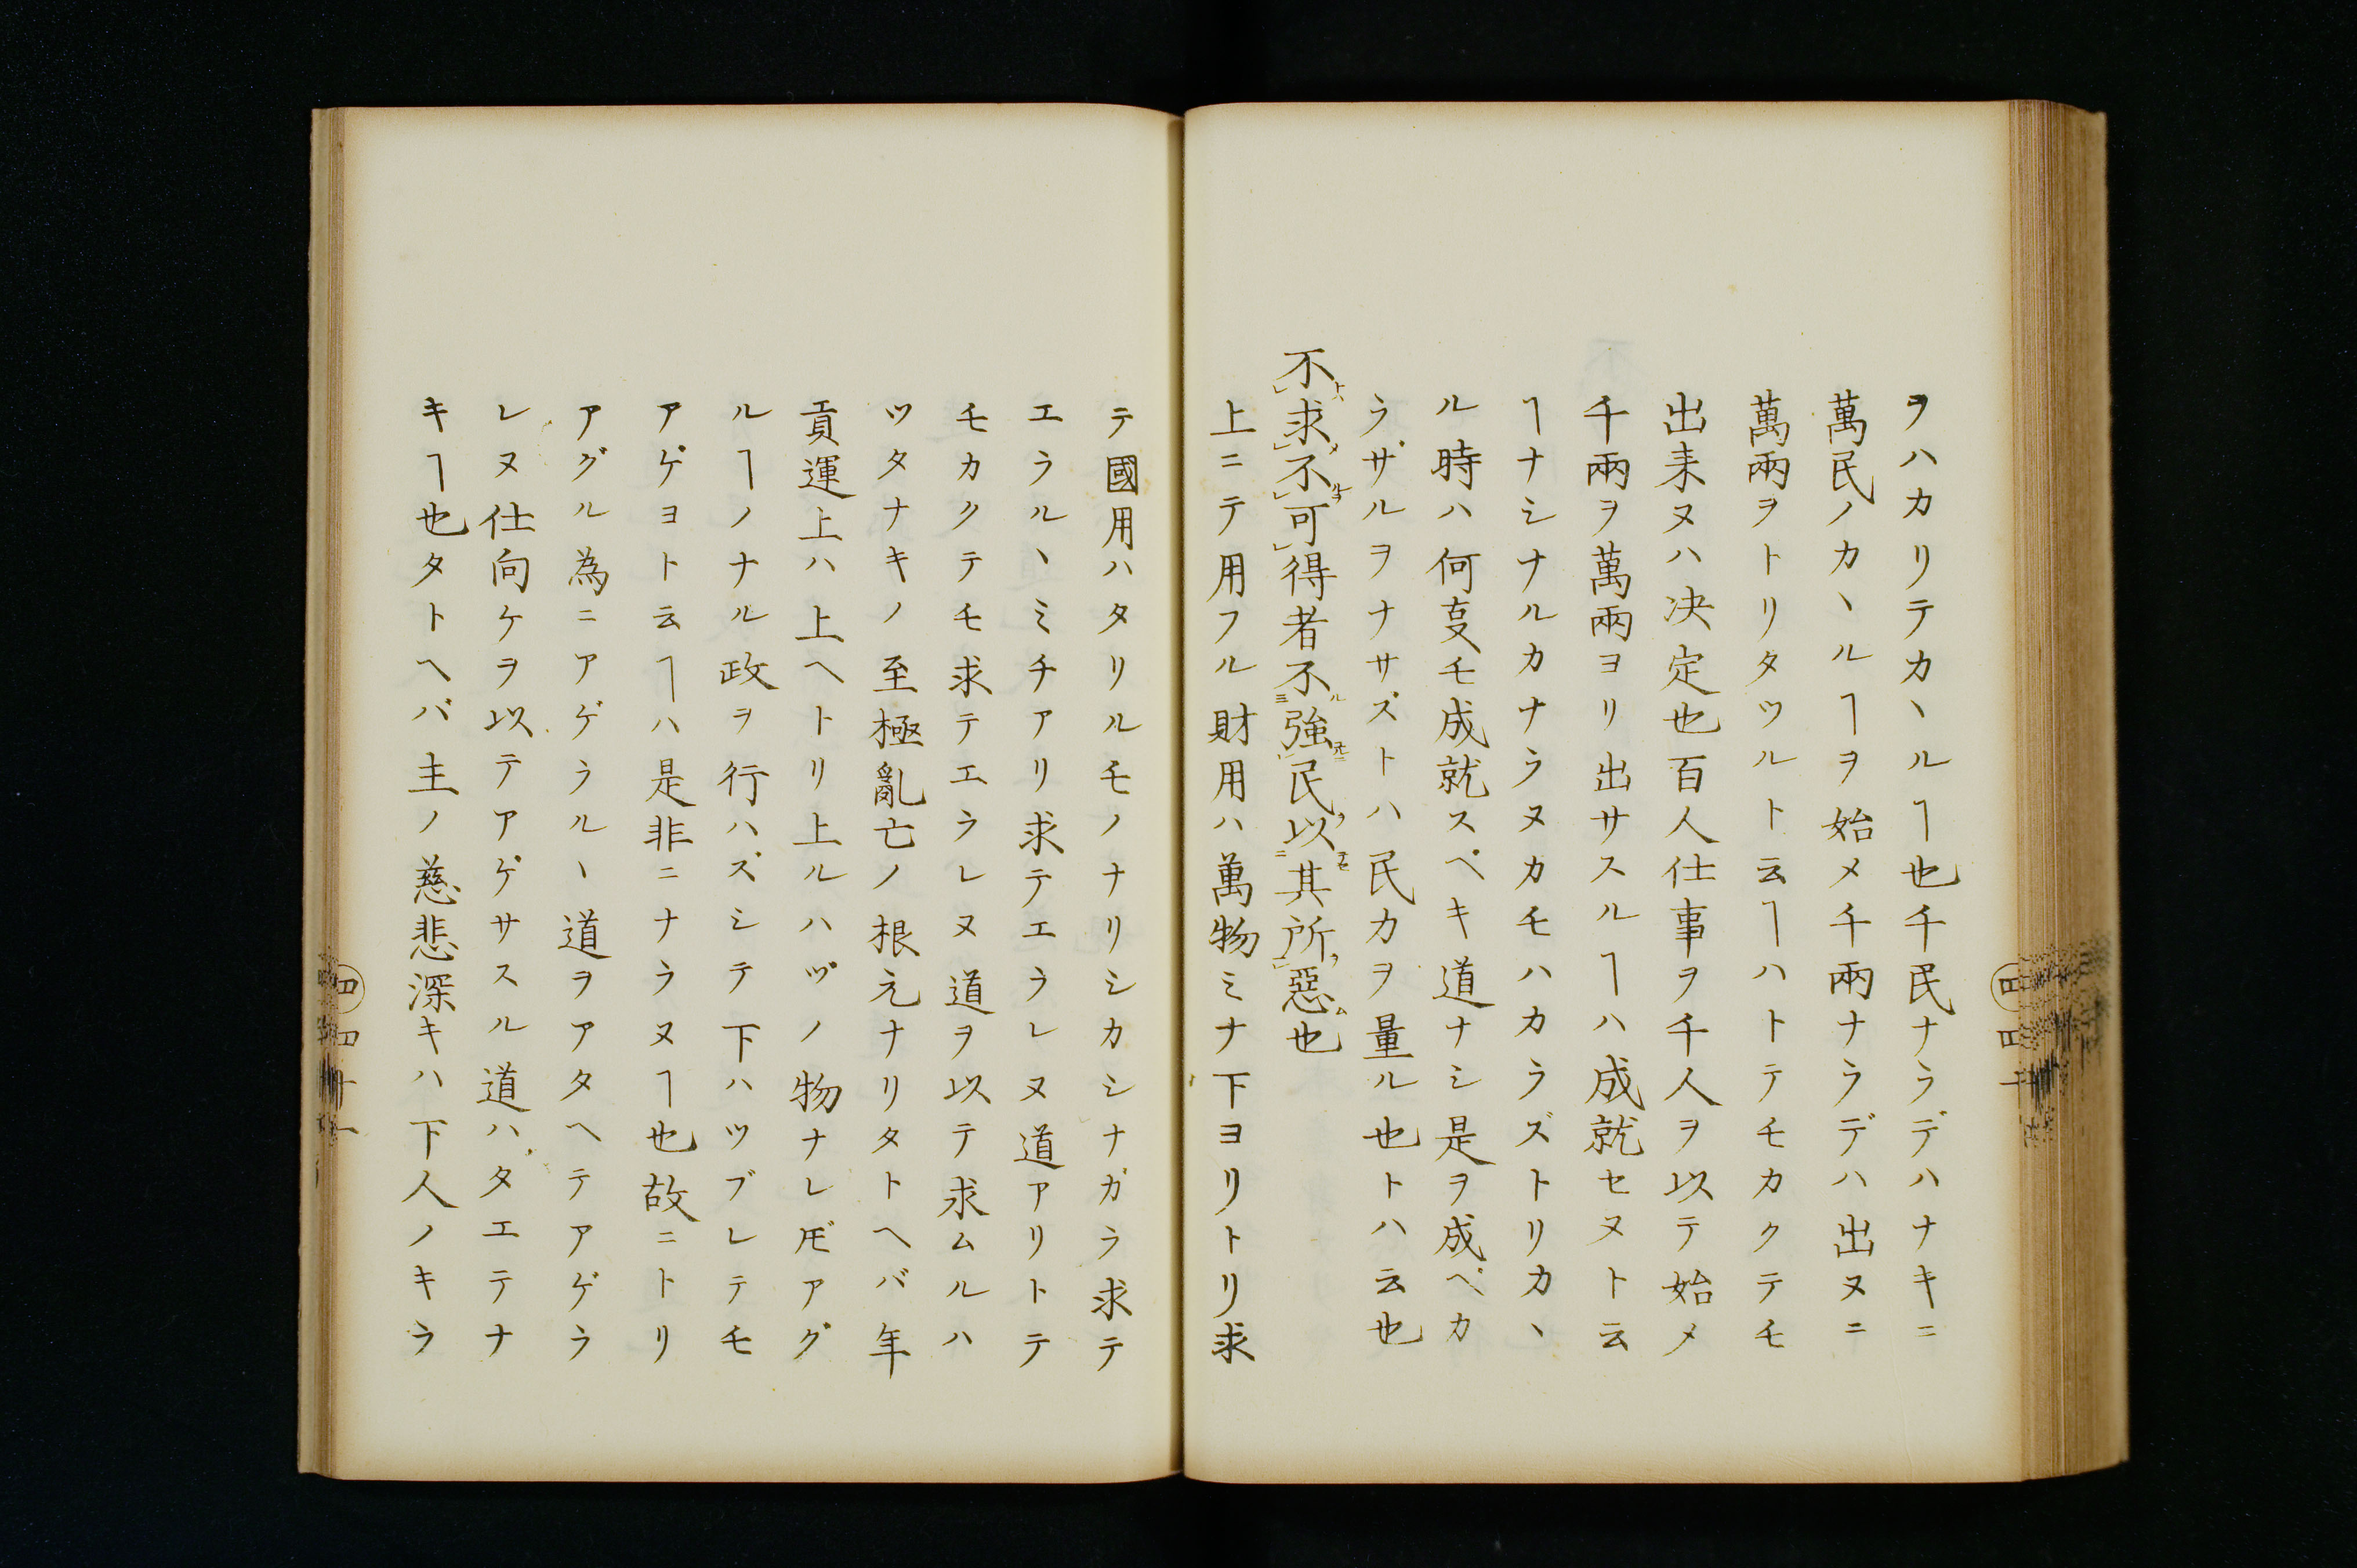 ヲハカリテカヽルヿ也千民ナラデハナキニ
萬民ノカヽルヿヲ始メ千兩ナラデハ出ヌニ
萬兩ヲトリタツルト云ヿハトテモカクテモ
出来ヌハ决定也百人仕事ヲ千人ヲ以テ始メ
千兩ヲ萬兩ヨリ出サスルヿハ成就セヌト云
ヿナシナルカナラヌカモハカラズトリカヽ
ル時ハ何叓モ成就スペキ道ナシ是ヲ成ペカ
ラザルヲナサズトハ民力ヲ量ル也トハ云也
不求不可得者不強民以其所惡也
上ニテ用フル財用ハ萬物ミナ下ヨリトリ求
テ國用ハタリルモノナリシカシナガラ求テ
エラルヽミチアリ求テエラレヌ道アリトテ
モカクテモ求テエラレヌ道ヲ以テ求ムルハ
ツタナキノ至極亂亡ノ根元ナリタトヘバ年
貢運上ハ上ヘトリ上ルハヅノ物ナレ𪜈アグ
ルヿノナル政ヲ行ハズシテ下ハツブレテモ
アゲヨト云ヿハ是非ニナラヌヿ也故ニトリ
アグル為ニアゲラルヽ道ヲアタヘテアゲラ
レヌ仕向ケヲ以テアゲサスル道ハタエテナ
キヿ也タトヘバ主ノ慈悲深キハ下人ノキラ
四 四十一